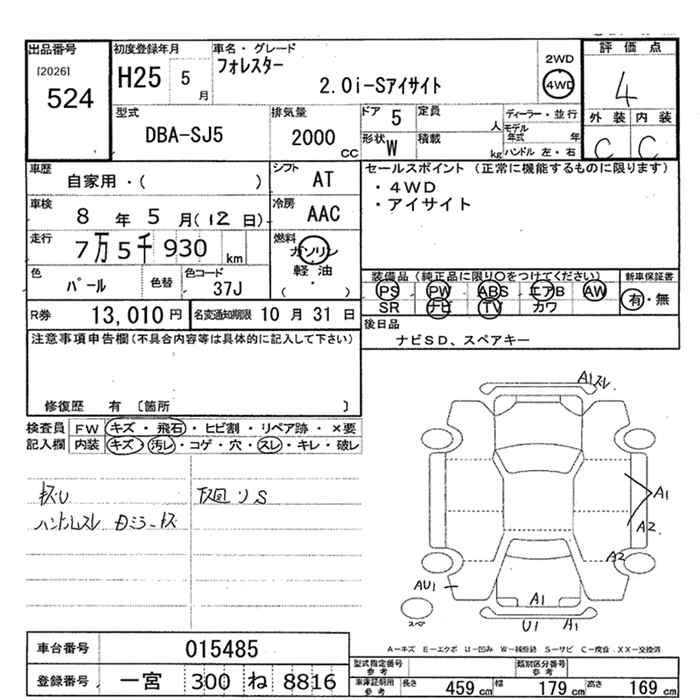 出品番号 初度登録年月 車名・グレード 評価点
[2026] 524 H25 5月 フォレスター 2.0i-Sアイサイト 2WD 4WD 4
型式 DBA-SJ5 排気量 2000 CC ドア 5 定員 人 ディーラー・並行 外装 内装
形状 W 積載 kg モデル年式 年 ハンドル 左・右 C C
車歴 自家用・( ) シフト AT セールスポイント (正常に機能するものに限ります)
・4WD
・アイサイト
車検 8年 5月(12日) 冷房 AAC
走行 7万5千930 km 燃料 ガソリン 軽油 ・ ( )
色 パール 色替 色コード 37J
装備品 (純正品に限り○をつけてください) 新車保証書
PS PW ABS エアB AW 有・無
SR ナビ TV カワ
R券 13,010円 名変通知期限 10月31日
後日品
ナビSD、スペアキー
注意事項申告欄(不具合内容等は具体的に記入して下さい)
修復歴 有 〔箇所 〕
検査員 FW キズ・飛石・ヒビ割・リペア跡・×要
記入欄 内装 キズ・汚レ・コゲ・穴・スレ・キレ・破レ
S
A1スレ
A1
A2
A2
AU1
A1
U1 A1
スペア
A−キズ E−エクボ U−凹み W−補修跡 S−サビ C−腐食 XX−交換済
車台番号 015485
登録番号 一宮 300 ね 8816
型式指定番号 参考 類別区分番号 参考
車庫証明用 参考 長さ 459cm 幅 179cm 高さ 169cm